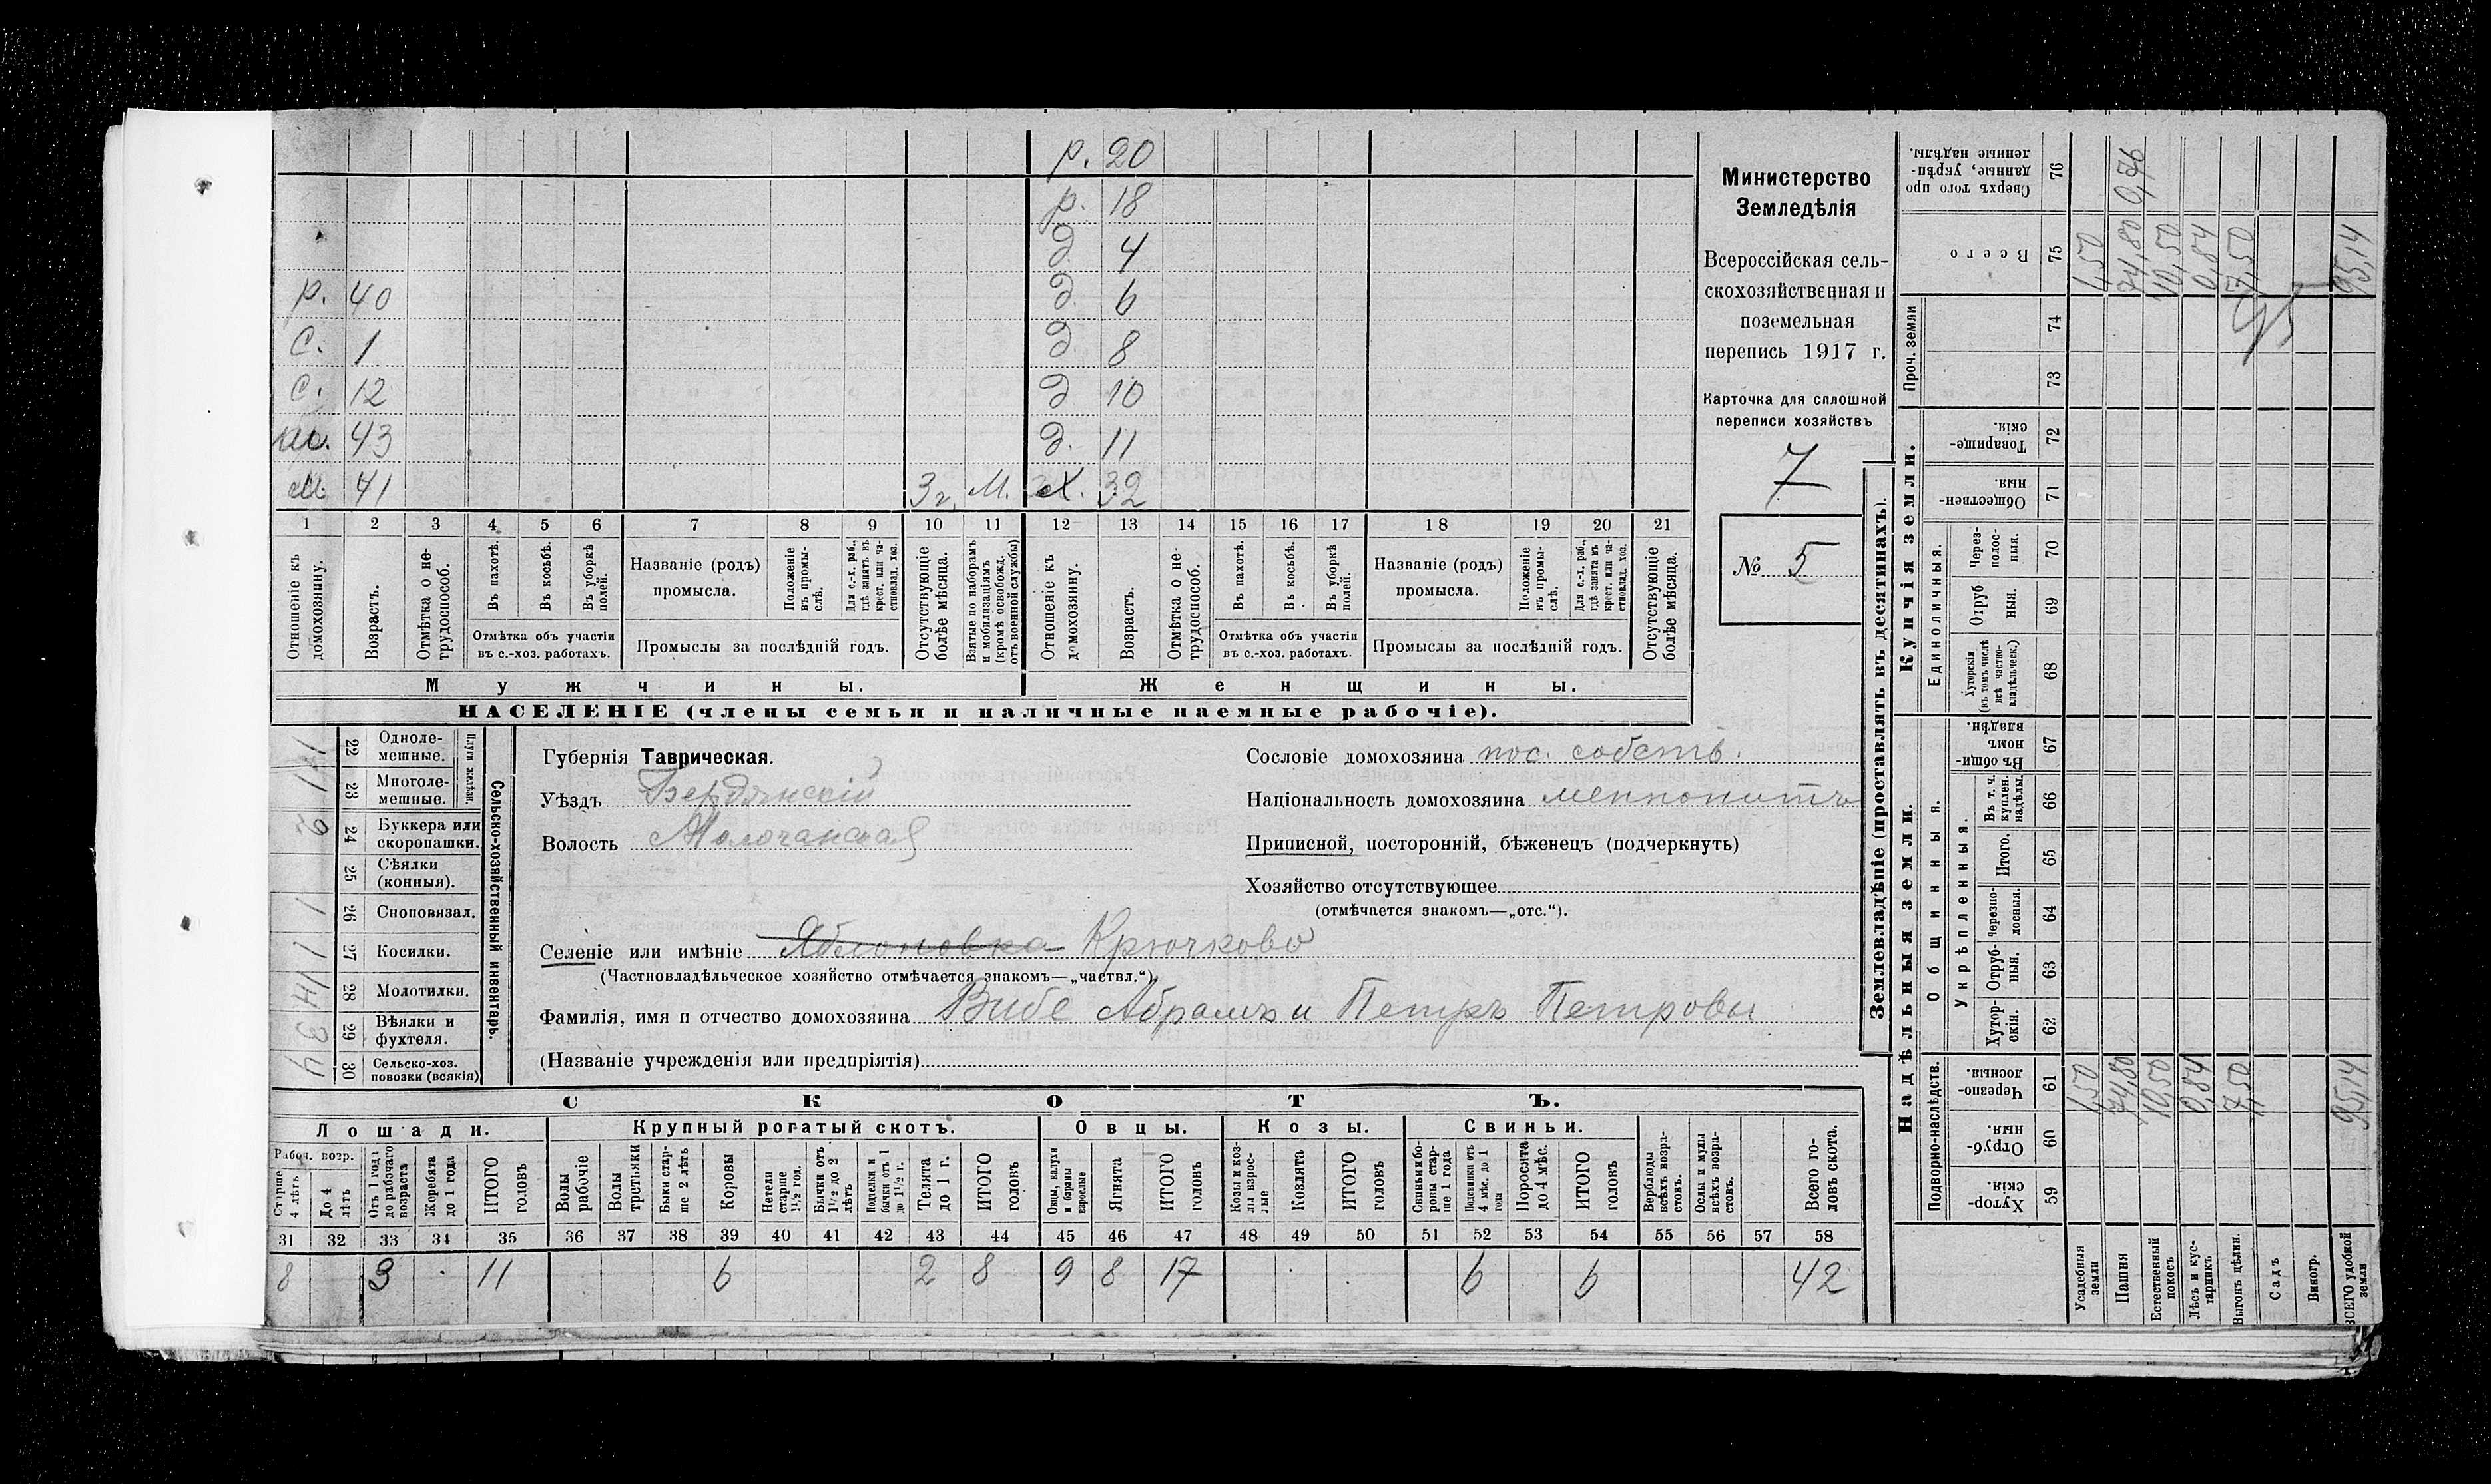 р. 20
р. 18
д 4
р. 40 д. 6
с. 1 д 8
с. 12 д 10
43 д. 11
м. 41 3 г. м. х. 32
1 2 3 4 5 6 7 8 9 10 11 12 13 14 15 16 17 18 19 20 21
Отношеніе къ домохозяину.
Возрастъ.
Отмѣтка о нетрудоспособ.
Въ пахотѣ.
Въ косьбѣ.
Въ уборкѣ полей.
Отмѣтка объ участіи
въ с.-хоз. работахъ.
Названіе (родъ)
промысла.
Положеніе въ промыслѣ.
Для с.-х. раб., гдѣ занятъ въ крест. или частновлад. хоз.
Промыслы за послѣдній годъ.
Отсутствующіе болѣе мѣсяца.
Взятые по наборамъ и мобилизаціямъ (кромѣ освобожд. отъ военной службы)
Отношеніе къ домохозяину.
Возрастъ.
Отмѣтка о нетрудоспособ.
Въ пахотѣ.
Въ косьбѣ.
Въ уборкѣ полей.
Отмѣтка объ участіи
въ с.-хоз. работахъ.
Названіе (родъ)
промысла.
Положеніе въ промыслѣ.
Для с.-х. раб., гдѣ занята въ крест. или частновлад. хоз.
Промыслы за послѣдній годъ.
Отсутствующіе болѣе мѣсяца.
Мужчины. Женщины.
НАСЕЛЕНІЕ (члены семьи и наличные наемные рабочіе).
Министерство
Земледѣлія
Всероссійская сель-
скохозяйственная и
поземельная
перепись 1917 г.
Карточка для сплошной
переписи хозяйствъ
7
№ 5
Сельско-хозяйственный инвентарь.
Плуги желѣзн.
22 Одноле-
мешные.
1 23 Многоле-
мешные.
2 24 Буккера или
скоропашки.
25 Сѣялки
(конныя).
1 26 Сноповязал.
1 27 Косилки.
28 Молотилки.
3 29 Вѣялки и
фухтеля.
4 30 Сельско-хоз.
повозки (всякія)
Губернія Таврическая.
Уѣздъ Бердянскій
Волость Молочанская
Селеніе или имѣніе Яблоновка Крючково
(Частновладѣльческое хозяйство отмѣчается знакомъ—„частвл.“)
Фамилія, имя и отчество домохозяина Вибе Абрамъ и Петръ Петровы
(Названіе учрежденія или предпріятія)
Сословіе домохозяина пос. собств.
Національность домохозяина меннонитъ
Приписной, посторонній, бѣженецъ (подчеркнуть)
Хозяйство отсутствующее
(отмѣчается знакомъ—„отс.“).
СКОТЪ.
Лошади. Крупный рогатый скотъ. Овцы. Козы. Свиньи.
Рабоч. возр.
Старше 4 лѣтъ
До 4 лѣтъ
Отъ 1 года до рабочаго возраста
Жеребята до 1 года
ИТОГО головъ
Волы рабочіе
Волы третьяки
Быки старше 2 лѣтъ
Коровы
Нетели старше 1½ год.
Бычки отъ 1½ до 2 лѣтъ
Подтелки и бычки отъ 1 до 1½ г.
Телята до 1 г.
ИТОГО головъ
Овцы, валухи и бараны взрослые
Ягнята
ИТОГО головъ
Козы и козлы взрослые
Козлята
ИТОГО головъ
Свиньи и бороны старше 1 года
Подсвинки отъ 4 мѣс. до 1 года
Поросята до 4 мѣс.
ИТОГО головъ
Верблюды всѣхъ возрастовъ.
Ослы и мулы всѣхъ возрастовъ.
Всего головъ скота.
31 32 33 34 35 36 37 38 39 40 41 42 43 44 45 46 47 48 49 50 51 52 53 54 55 56 57 58
8 3 11 6 2 8 9 8 17 6 6 42
Землевладѣніе (проставлять въ десятинахъ).
Надѣльныя земли. Купчія земли.
Проч. земли
Подворно-наслѣдств.
Общинныя.
Укрѣпленныя.
Единоличныя.
59 Хуторскія.
60 Отрубныя.
61 Черезполосныя.
62 Хуторскія.
63 Отрубныя.
64 Черезполосныя.
65 Итого.
66 Въ т. ч. куплен. надѣлы.
67 Въ общинномъ владѣн.
68 Хуторскія (въ томъ числѣ всѣ частновладѣльческ.)
69 Отрубныя.
70 Черезполосныя.
71 Общественныя.
72 Товарищескія.
73
74
75 Всего
76 Сверхъ того проданные, укрѣпленные надѣлы.
Усадебныя земли 1,50 1,50
Пашня 74,80 74,80 0,76
Естественный покосъ 10,50 10,50
Лѣсъ и кустарникъ 0,84 0,84
Выгонъ цѣлин. 7,50 7,50
Садъ
Виногр.
ВСЕГО удобной земли 95,14 95,14